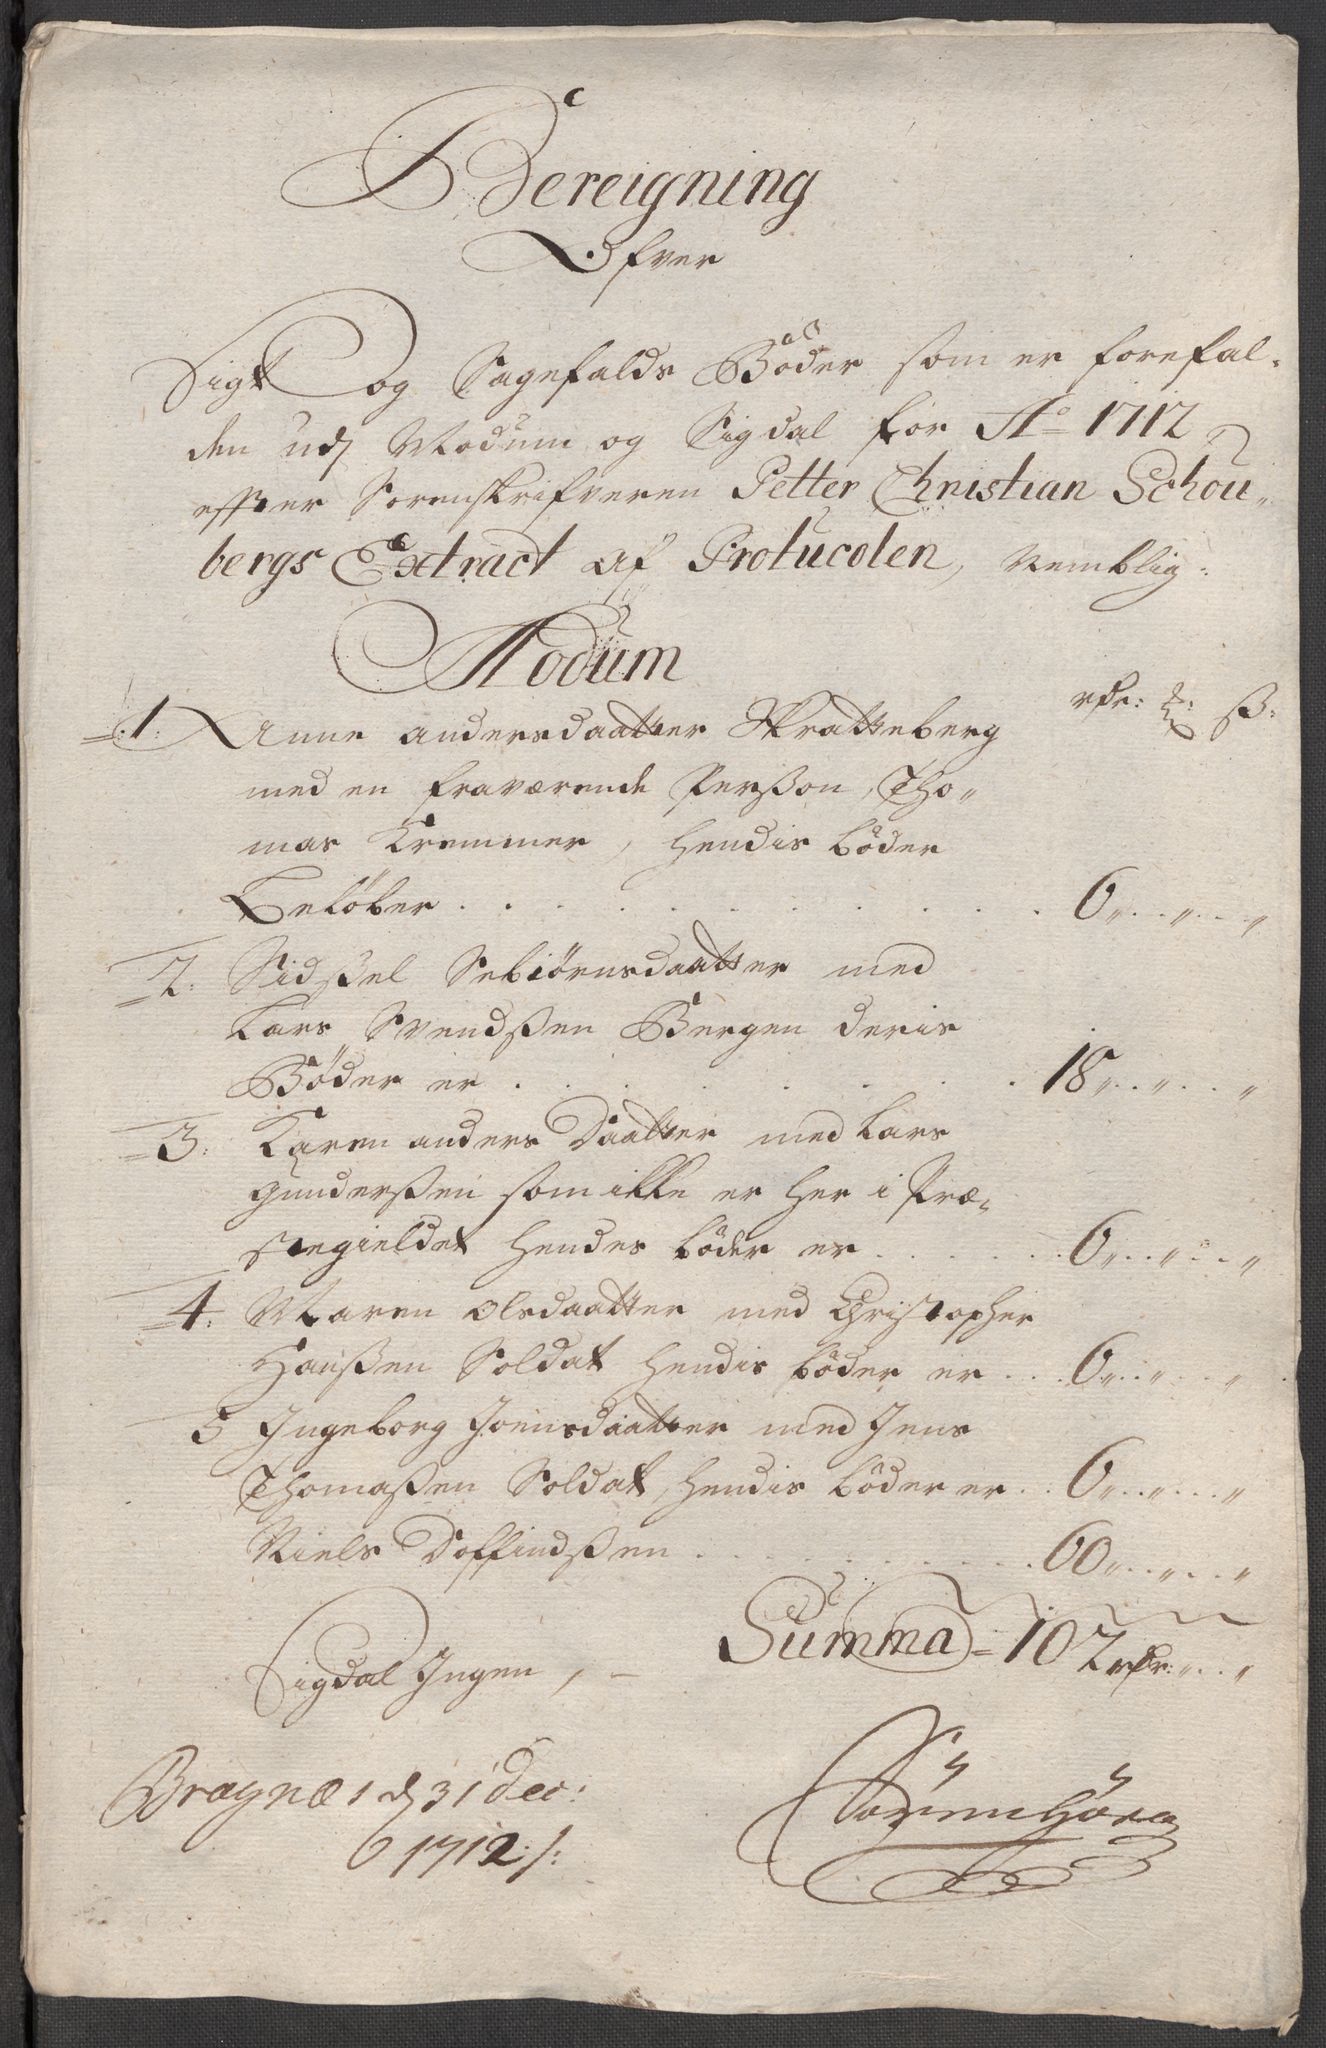 Bereigning
Ofver
Sigt og Sagefalds Bøder som er forefal-
den udj Modum og Sigdal for Ao 1712
effter Sorenskrifveren Petter Christian Schou-
bergs Extract af Protucolen, Nemblig:
Modum
rdr: ß:
1: Anne andersdaatter Skratteberg
med en fraværende Persson, Tho-
mas Kremmer, hendis bøder
Beløber . . . . . . . . 6 " . . " . . "
2: Sidssel Sebiørnsdaatter med
Lars Svendssen Bergen deris
Bøder er . . . . . . . 18 " . . " . . "
3: Karen anders Daatter med Lars
gunderssen som ikke er her i Præ-
stegieldet hendes bøder er . . . . 6 " . . " . . "
4: Maren olsdaatter med Christopher
Hanssen Soldat hendis bøder er . . 6 " . . " . . "
5 Ingeborg Joensdaatter med Jens
Thomassen Soldat, hendis bøder er . . 6 " . . " . . "
Niels Doffindssen . . . . . . . 60 " . . " . . "
Summa = 102 rdr: " . . "
Sigdal Ingen, -
Bragnæs d 31 Dec:
1712 /: